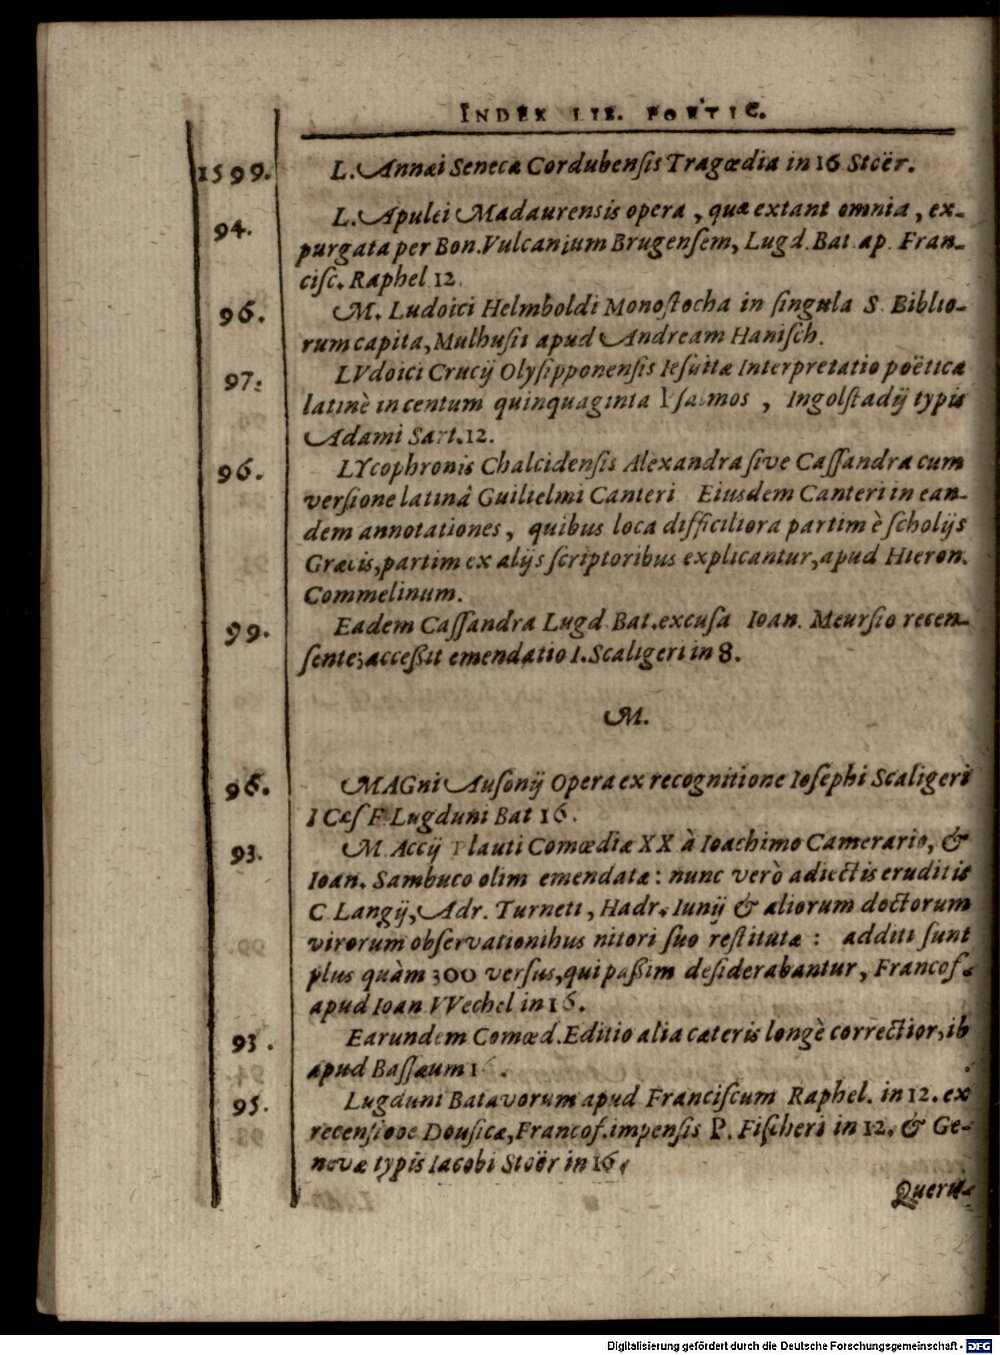 INDEX LIB. POETIC.
1599. L. Annæi Senecæ Cordubensis Tragœdia in 16 Stoër.
94. L. Apulei Madaurensis opera, quæ extant omnia, ex-
purgata per Bon. Vulcanium Brugensem, Lugd. Bat. ap. Fran-
cisc. Raphel 12.
96. M. Ludoici Helmboldi Monosticha in singula S. Biblio-
rum capita, Mulhusii apud Andream Hanisch.
97. LVdoici Crucij Olysipponensis Iesuitæ Interpretatio poëtica
latinè in centum quinquaginta Psalmos, Ingolstadij typis
Adami Sart. 12.
96. LYcophronis Chalcidensis Alexandra sive Cassandra cum
versione latinâ Guilielmi Canteri Eiusdem Canteri in ean-
dem annotationes, quibus loca difficiliora partim è scholijs
Græcis, partim ex alijs scriptoribus explicantur, apud Hieron.
Commelinum.
99. Eadem Cassandra Lugd. Bat. excusa Ioan. Meursio recen-
sente; accessit emendatio I. Scaligeri in 8.
M.
96. MAGni Ausonij Opera ex recognitione Iosephi Scaligeri
I Cæs F. Lugduni Bat 16.
93. M. Accij Plauti Comœdiæ XX à Ioachimo Camerario, &
Ioan. Sambuco olim emendatæ: nunc verò adiectis eruditis
C. Langij, Adr. Turneti, Hadr. Iunij & aliorum doctorum
virorum observationibus nitori suo restitutæ: additi sunt
plus quàm 300 versus, qui passim desiderabantur, Francof.
apud Ioan VVechel in 16.
93. Earundem Comœd. Editio alia cæteris longè correctior, ib
apud Bassæum 16.
95. Lugduni Batavorum apud Franciscum Raphel. in 12. ex
recensione Dousicæ, Francof. impensis P. Fischeri in 12. & Ge-
nevæ typis Iacobi Stoër in 16.
Queru-
Digitalisierung gefördert durch die Deutsche Forschungsgemeinschaft - DFG